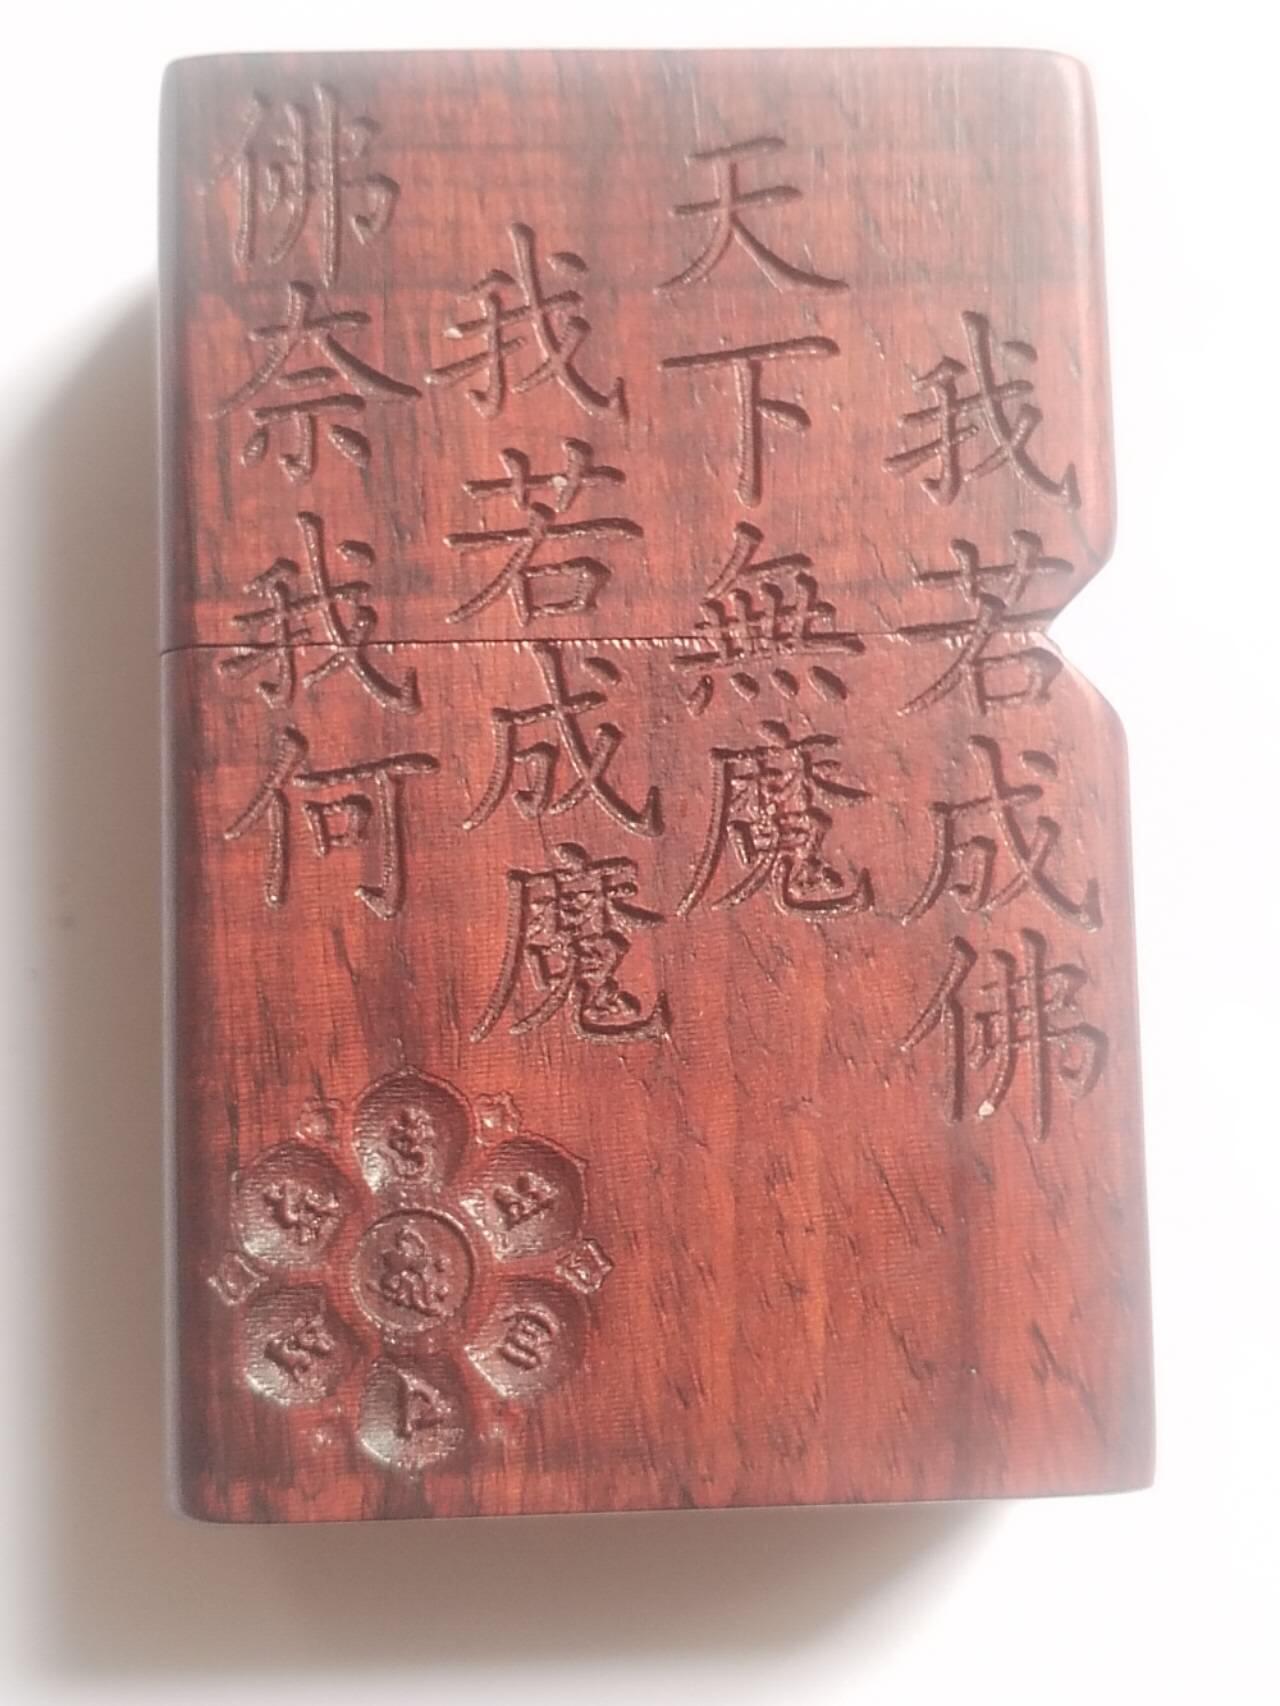 我若成佛
天下無魔
我若成魔
佛奈我何